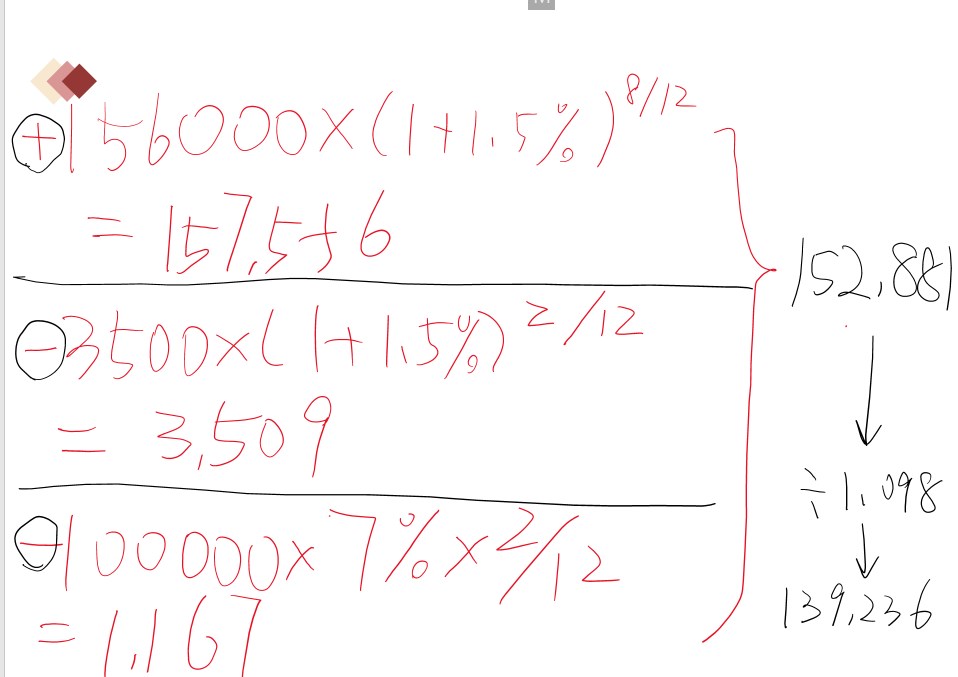 ⊕156000×(1+1.5%)^8/12
=157,556
⊖3500×(1+1.5%)^2/12
=3,509
⊖100000×7%×2/12
=1,167
152,881
÷1.098
139,236